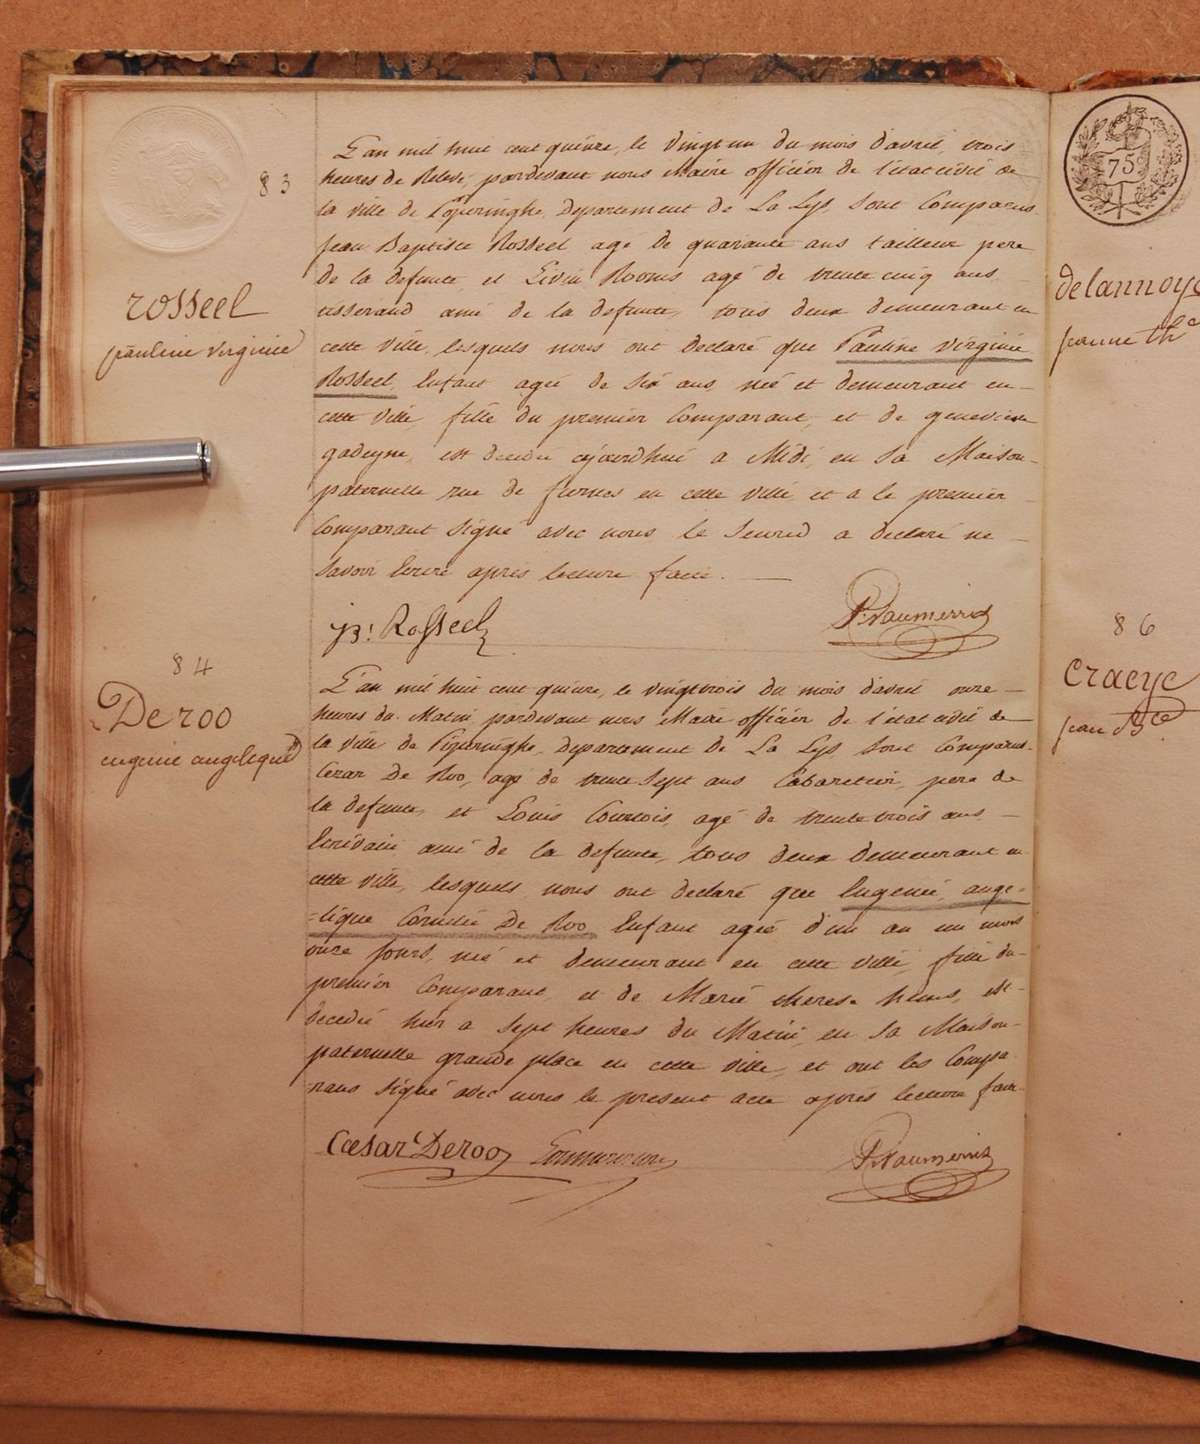 83
rosseel
pauline virginie
L'an mil huit cent quinze, le vingt un du mois d'avril, trois
heures de Relevé, pardevant nous Maire officier de l'état civil de
la ville de Poperinghe, Departement de La Lys, Sont Comparus
Jean Baptiste Rosseel agé de quarante ans tailleur pere
de la defunte, et Livin Rooms agé de trente cinq ans
tisserand ami de la defunte, tous deux demeurant en
cette ville, lesquels nous ont declaré que Pauline virginie
Rosseel, Enfant agée de six ans, née et demeurant en
cette ville, fille du premier Comparant, et de genevieve
gadeyne, est decedée aujourd'hui a Midi, en Sa Maison
paternelle rue de furnes en cette ville et a le premier
Comparant Signé avec nous le Second a declaré ne
Savoir Ecrire après lecture faite.
JB: Rosseel
84
De roo
eugenie angelique
L'an mil huit cent quinze, le vingt trois du mois d'avril onze
heures du Matin, pardevant nous Maire officier de l'état civil de
la ville de Poperinghe, Departement de La Lys, Sont Comparus
Cezar De Roo, agé de trente Sept ans Cabaretier, pere de
la defunte, et Louis Courtois, agé de trente trois ans
Ecrivain ami de la defunte, tous deux demeurant en
cette ville, lesquels nous ont declaré que Eugenie, ange-
-lique De Roo, Enfant agée d'un an un mois
onze jours, née et demeurant en cette ville, fille du
premier Comparant, et de Marie therese, est
decedée hier a Sept heures du Matin, en Sa Maison
paternelle grande place en cette ville, et ont les Compa-
-rans Signé avec nous le present acte après lecture faite
Cœsar Deroo
75
delannoye
jeanne th
86
Craeye
jean Bte